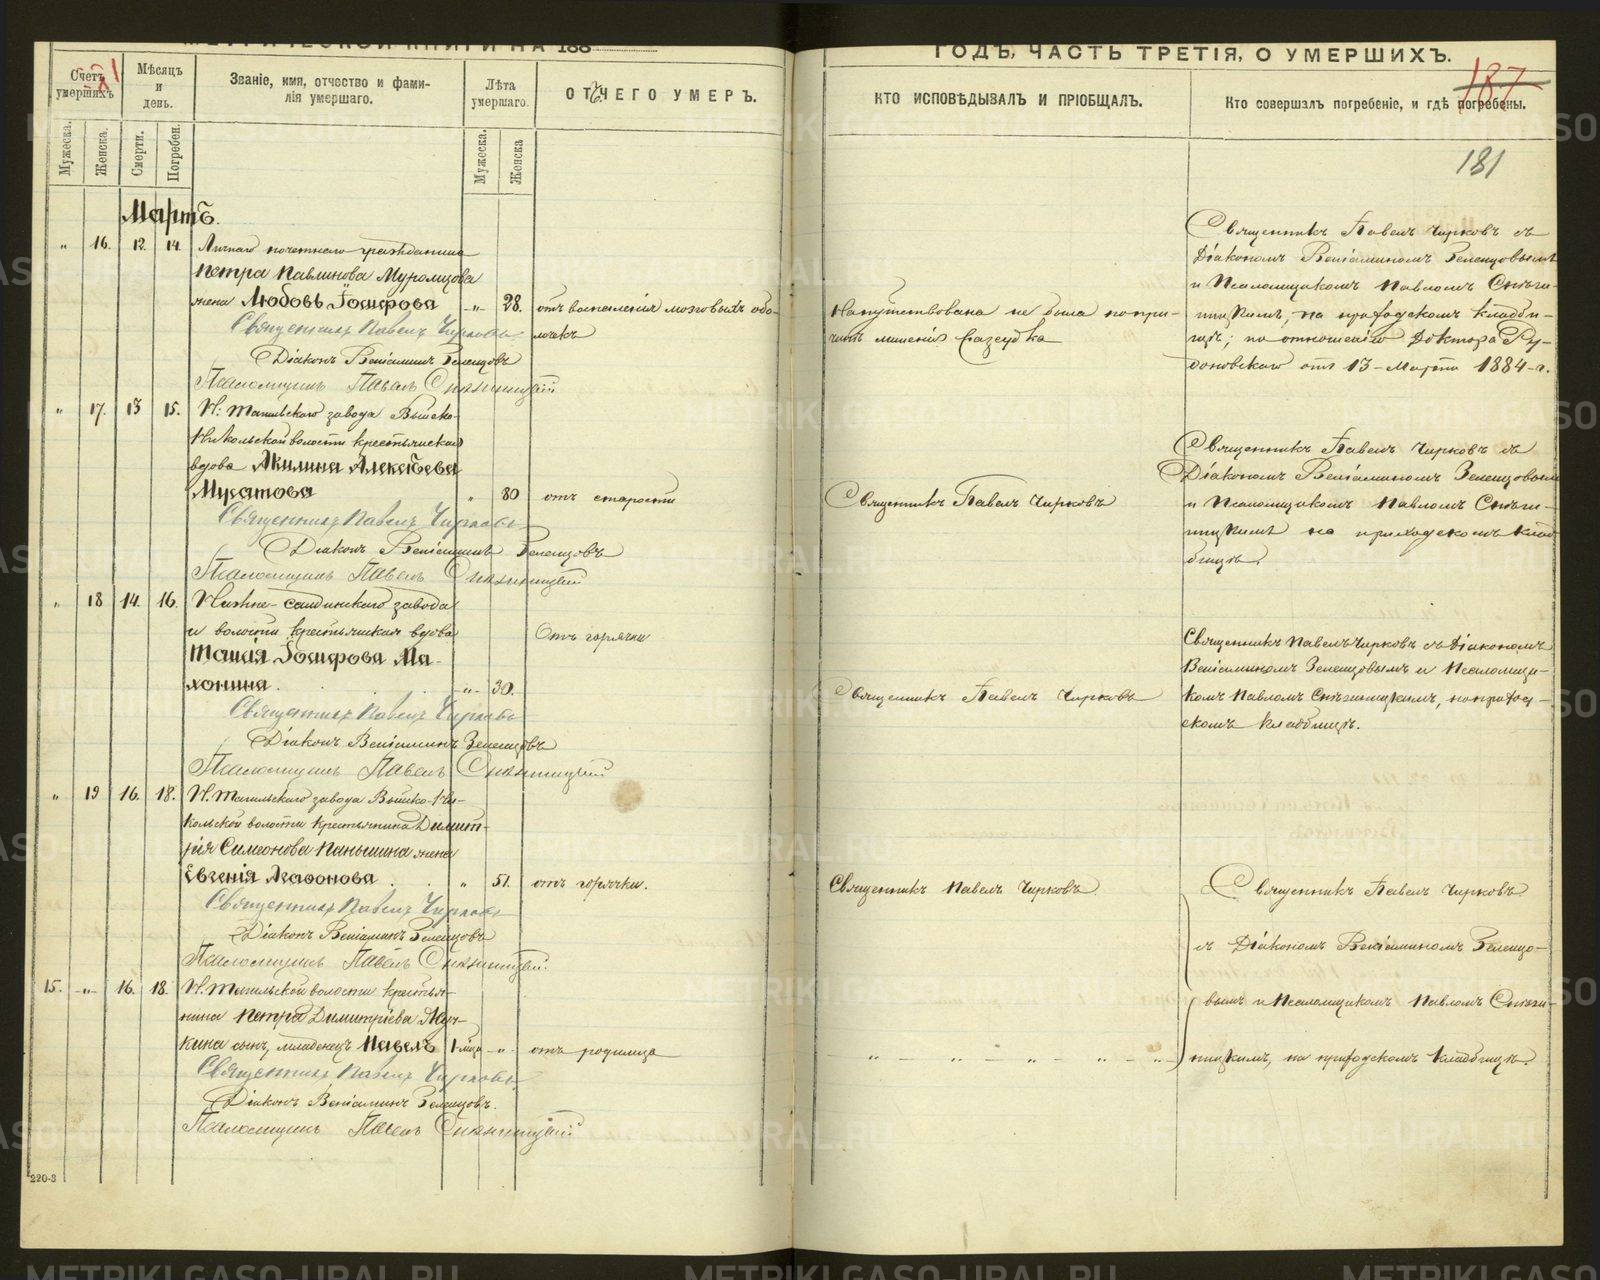 МЕТРИЧЕСКОЙ КНИГИ НА 188
Счетъ умершихъ.
Мѣсяцъ и день.
Званіе, имя, отчество и фами-
лія умершаго.
Лѣта умершаго.
ОТЪ ЧЕГО УМЕРЪ.
Мужеска.
Женска.
Смерти.
Погребен.
Мужеска.
Женска
Мартъ.
" 16. 12. 14. Личнаго почетнаго гражданина
Петра Павлинова Муромцова
жена Любовь Іосифова -"- 28. отъ воспаленія мозговыхъ обо-
Священникъ Павелъ Чирковъ лочекъ
Діаконъ Веніаминъ Зеленцовъ
Псаломщикъ Павелъ
" 17. 13 15. Н: Тагильскаго завода Выйско-
Никольской волости крестьянская
вдова Акилина Алексѣева
Мусатова " 80 отъ старости
Священникъ Павелъ Чирковъ
Діаконъ Веніаминъ Зеленцовъ
Псаломщикъ Павелъ
" 18 14. 16. Нижне-салдинскаго завода
и волости крестьянская вдова Отъ горячки
Іосифова Ма-
хонина. -"- 30.
Священникъ Павелъ Чирковъ
Діаконъ Веніаминъ Зеленцовъ
Псаломщикъ Павелъ
" 19 16. 18. Н. Тагильскаго завода Выйско-Ни-
кольской волости крестьянина Димит-
рія Симеонова Паньшина жена
Евгенія Агафонова . . " 51. отъ горячки.
Священникъ Павелъ Чирковъ
Діаконъ Веніаминъ Зеленцовъ
Псаломщикъ Павелъ
15. -"- 16. 18. Н. Тагильской волости крестья-
нина Петра Димитріева
кина сынъ, младенецъ Павелъ 1 мѣся -"- отъ родимца
Священникъ Павелъ Чирковъ
Діаконъ Веніаминъ Зеленцовъ.
Псаломщикъ Павелъ
220-3
ГОДЪ, ЧАСТЬ ТРЕТІЯ, О УМЕРШИХЪ.
187
КТО ИСПОВѢДЫВАЛЪ И ПРІОБЩАЛЪ.
Кто совершалъ погребеніе, и гдѣ погребены.
181
Священникъ Павелъ Чирковъ съ
Діакономъ Веніаминомъ Зеленцовымъ
и Псаломщикомъ Павломъ Снѣги-
Напутствована не была по при-
ницкимъ, на приходскомъ кладби-
чинѣ лишенія разсудка
щѣ; по отношенію Доктора Ру-
дановскаго отъ 13-Марта 1884-г.
Священникъ Павелъ Чирковъ съ
Діакономъ Веніаминомъ Зеленцовымъ
Священникъ Павелъ Чирковъ
и Псаломщикомъ Павломъ Снѣги-
ницкимъ на приходскомъ клад-
бищѣ.
Священникъ Павелъ Чирковъ съ Діакономъ
Веніаминомъ Зеленцовымъ и Псаломщи-
Священникъ Павелъ Чирковъ
комъ Павломъ Снѣгиницкимъ, на приход-
скомъ кладбищѣ.
Священникъ Павелъ Чирковъ
Священникъ Павелъ Чирковъ
съ Діакономъ Веніаминомъ Зеленцо-
вымъ и Псаломщикомъ Павломъ Снѣги-
-"- -"- -"- -"- ницкимъ, на приходскомъ кладбищѣ.
METRIKI.GASO-URAL.RU